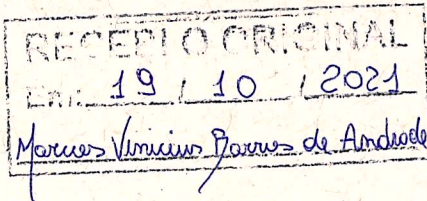 RECEBI O ORIGINAL
Em: 19 / 10 / 2021
Marcus Vinicius Barros de Andrade